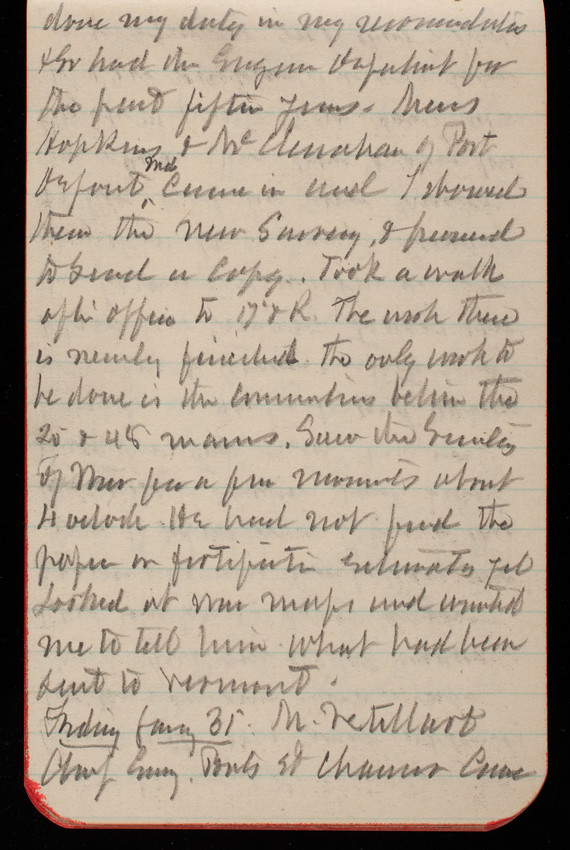 done my duty in my recommendations
& Gr had the Engineer Dept for
the past fifteen years. Messrs
Hopkins & McClenahan of Port
Deposit, Md came in and I showed
them the new Survey, & promised
to send a copy. Took a walk
after office to 17 & R. The work there
is nearly finished the only work to
be done is the connection between the
20 & 48 mains. Saw the Secretary
of War for a few moments about
4 oclock He had not read the
paper on fortification estimates yet
Looked at war maps and wanted
me to tell him what had been
sent to Vermont.
Friday Jany 31. M.
Chief Eng. Ponts et Chaussees Came